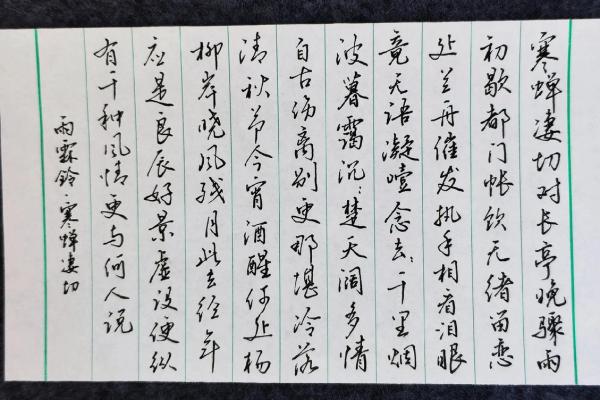 寒蝉凄切对长亭晚骤雨
初歇都门帐饮无绪留恋
处兰舟催发执手相看泪眼
竟无语凝噎念去〻千里烟
波暮霭沉〻楚天阔多情
自古伤离别更那堪冷落
清秋节今宵酒醒何处杨
柳岸晓风残月此去经年
应是良辰好景虚设便纵
有千种风情更与何人说
雨霖铃·寒蝉凄切